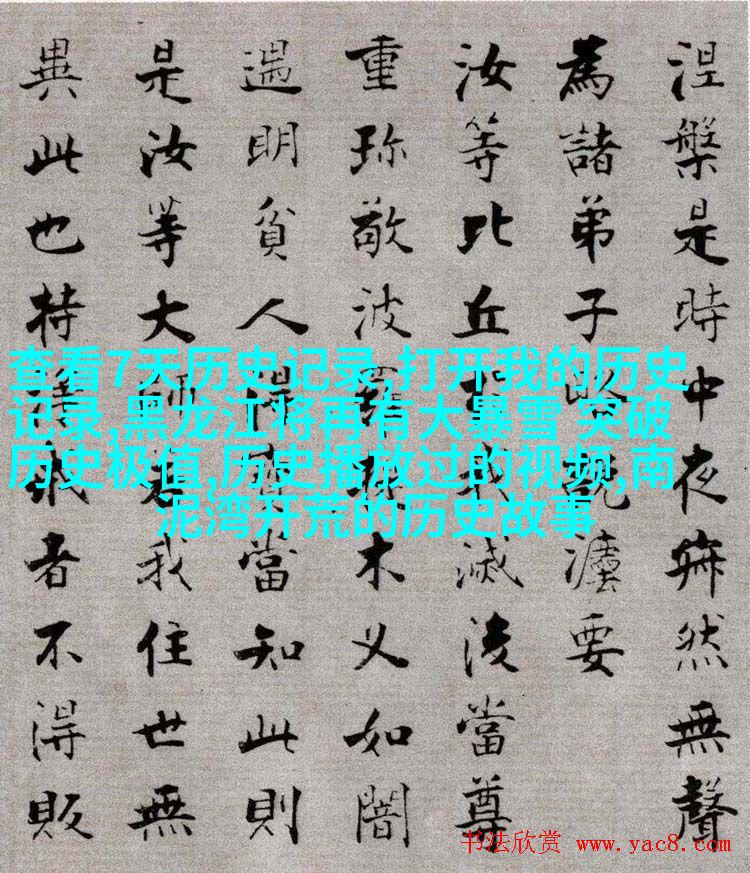 涅槃是時中夜寂然無聲
為諸弟子略說灋要
汝等比丘我滅後當尊
重珍敬波羅木叉如闇
遇明貧人得當知此則
是汝等大師我住世無
異此也持者不得販
查看7天历史记录,打开我的历史
记录,黑龙江将再有大暴雪 突破
历史极值,历史播放过的视频,南
泥湾开荒的历史故事
书法欣赏 www.yac8.com